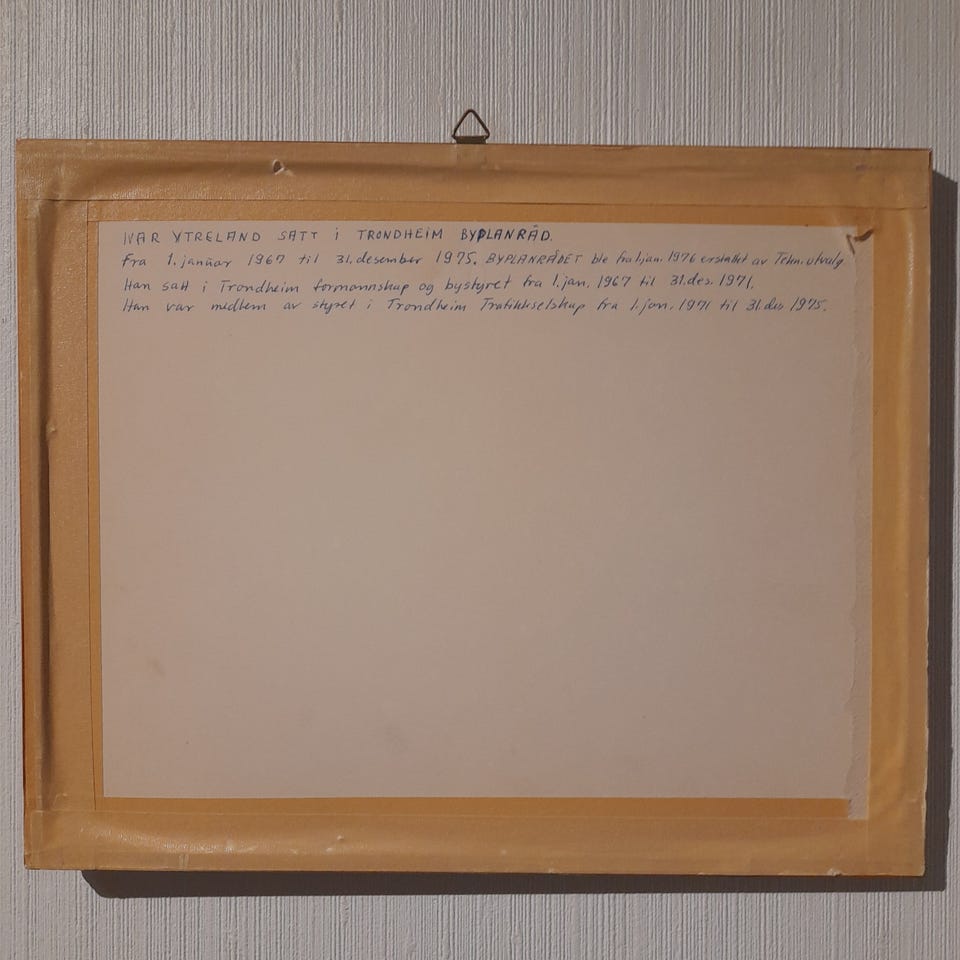 IVAR YTRELAND SATT i TRONDHEIM BYPLANRÅD.
Fra 1. januar 1967 til 31. desember 1975. BYPLANRÅDET ble fra 1. jan. 1976 erstattet av Tekn. utvalg
Han satt i Trondheim formannskap og bystyret fra 1. jan. 1967 til 31. des. 1971.
Han var medlem av styret i Trondheim Trafikkselskap fra 1. jan. 1971 til 31. des 1975.